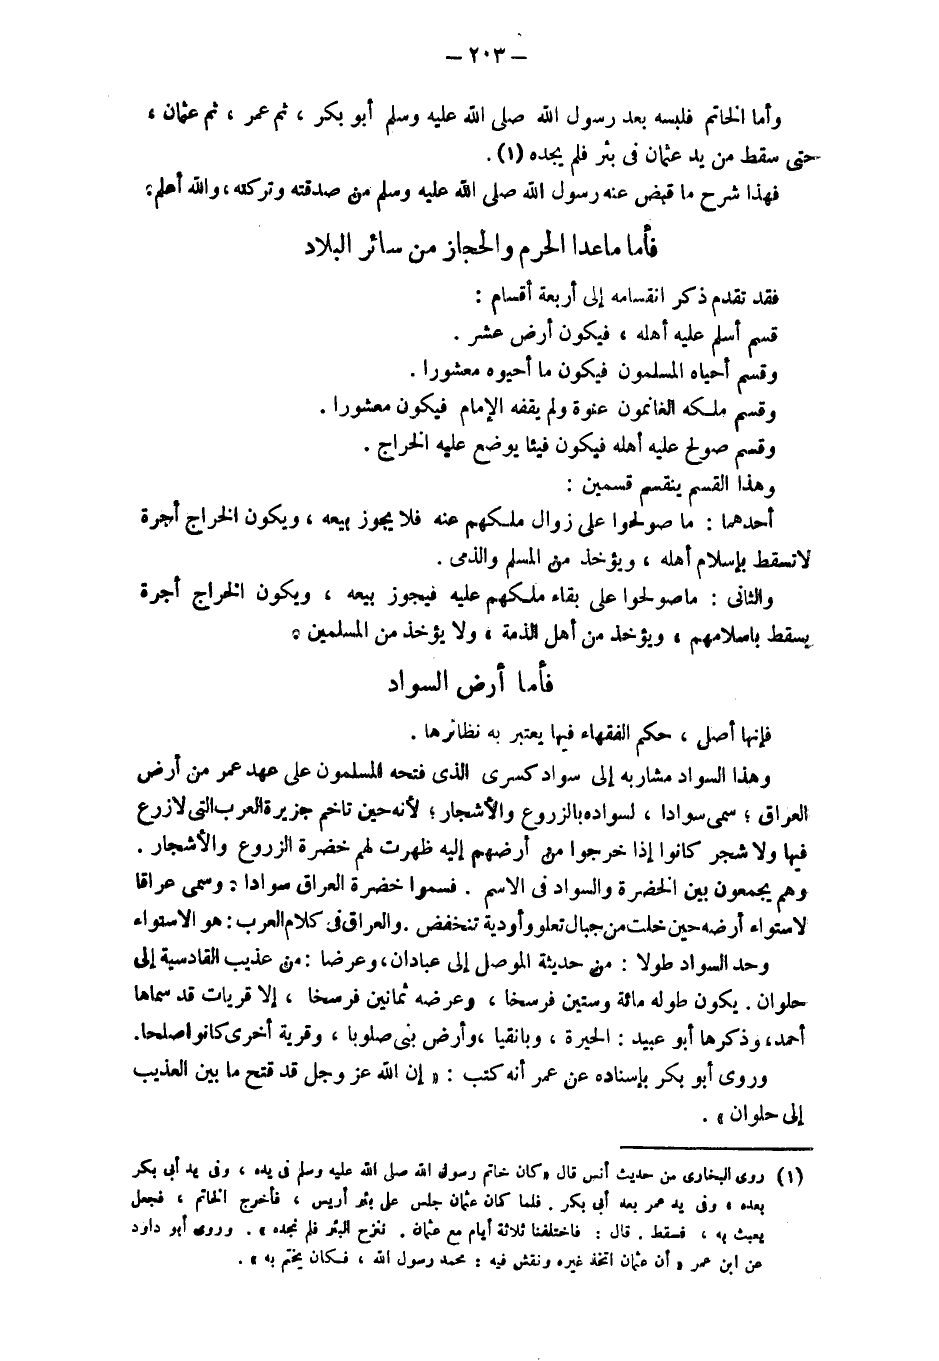 — ٢٠٣ —
وأما الخاتم فلبسه بعد رسول الله صلى الله عليه وسلم أبو بكر ، ثم عمر ، ثم عثمان ،
حتى سقط من يد عثمان فى بئر فلم يجده (١) .
فهذا شرح ما قبض عنه رسول الله صلى الله عليه وسلم من صدقته وتركته ، والله أعلم :
فأما ماعدا الحرم والحجاز من سائر البلاد
فقد تقدم ذكر انقسامه إلى أربعة أقسام :
قسم أسلم عليه أهله ، فيكون أرض عشر .
وقسم أحياه المسلمون فيكون ما أحيوه معشورا .
وقسم ملكه الغانمون عنوة ولم يقفه الإمام فيكون معشورا .
وقسم صولح عليه أهله فيكون فيئا يوضع عليه الخراج .
وهذا القسم ينقسم قسمين :
أحدهما : ما صولحوا على زوال ملكهم عنه فلا يجوز بيعه ، ويكون الخراج أجرة
لاتسقط بإسلام أهله ، ويؤخذ من المسلم والذمى .
والثانى : ماصولحوا على بقاء ملكهم عليه فيجوز بيعه ، ويكون الخراج أجرة
يسقط باسلامهم ، ويؤخذ من أهل الذمة ، ولا يؤخذ من المسلمين .
فأما أرض السواد
فإنها أصل ، حكم الفقهاء فيها يعتبر به نظائرها .
وهذا السواد مشاربه إلى سواد كسرى الذى فتحه المسلمون على عهد عمر من أرض
العراق ؛ سمى سوادا ، لسواده بالزروع والأشجار ؛ لأنه حين تاخم جزيرة العرب التى لازرع
فيها ولا شجر كانوا إذا خرجوا من أرضهم إليه ظهرت لهم خضرة الزروع والأشجار .
وهم يجمعون بين الخضرة والسواد فى الاسم . فسموا خضرة العراق سوادا : وسمى عراقا
لاستواء أرضه حين خلت من جبال تعلو وأودية تنخفض . والعراق فى كلام العرب : هو الاستواء
وحد السواد طولا : من حديثة الموصل إلى عبادان ، وعرضا : من عذيب القادسية إلى
حلوان . يكون طوله مائة وستين فرسخا ، وعرضه ثمانين فرسخا ، إلا قريات قد سماها
أحمد ، وذكرها أبو عبيد : الحيرة ، وبانقيا ، وأرض بنى صلوبا ، وقرية أخرى كانوا صلحا .
وروى أبو بكر بإسناده عن عمر أنه كتب : « إن الله عز وجل قد فتح ما بين العذيب
إلى حلوان » .
(١) روى البخارى من حديث أنس قال « كان خاتم رسول الله صلى الله عليه وسلم فى يده ، وفى يد أبى بكر
بعده ، وفى يد عمر بعد أبى بكر . فلما كان عثمان جلس على بئر أريس ، فأخرج الخاتم ، فجعل
يعبث به ، فسقط . قال : فاختلفنا ثلاثة أيام مع عثمان . ننزح البئر فلم نجده » . وروى أبو داود
عن ابن عمر « أن عثمان اتخذ غيره ونقش فيه : محمد رسول الله ، فكان يختم به » .